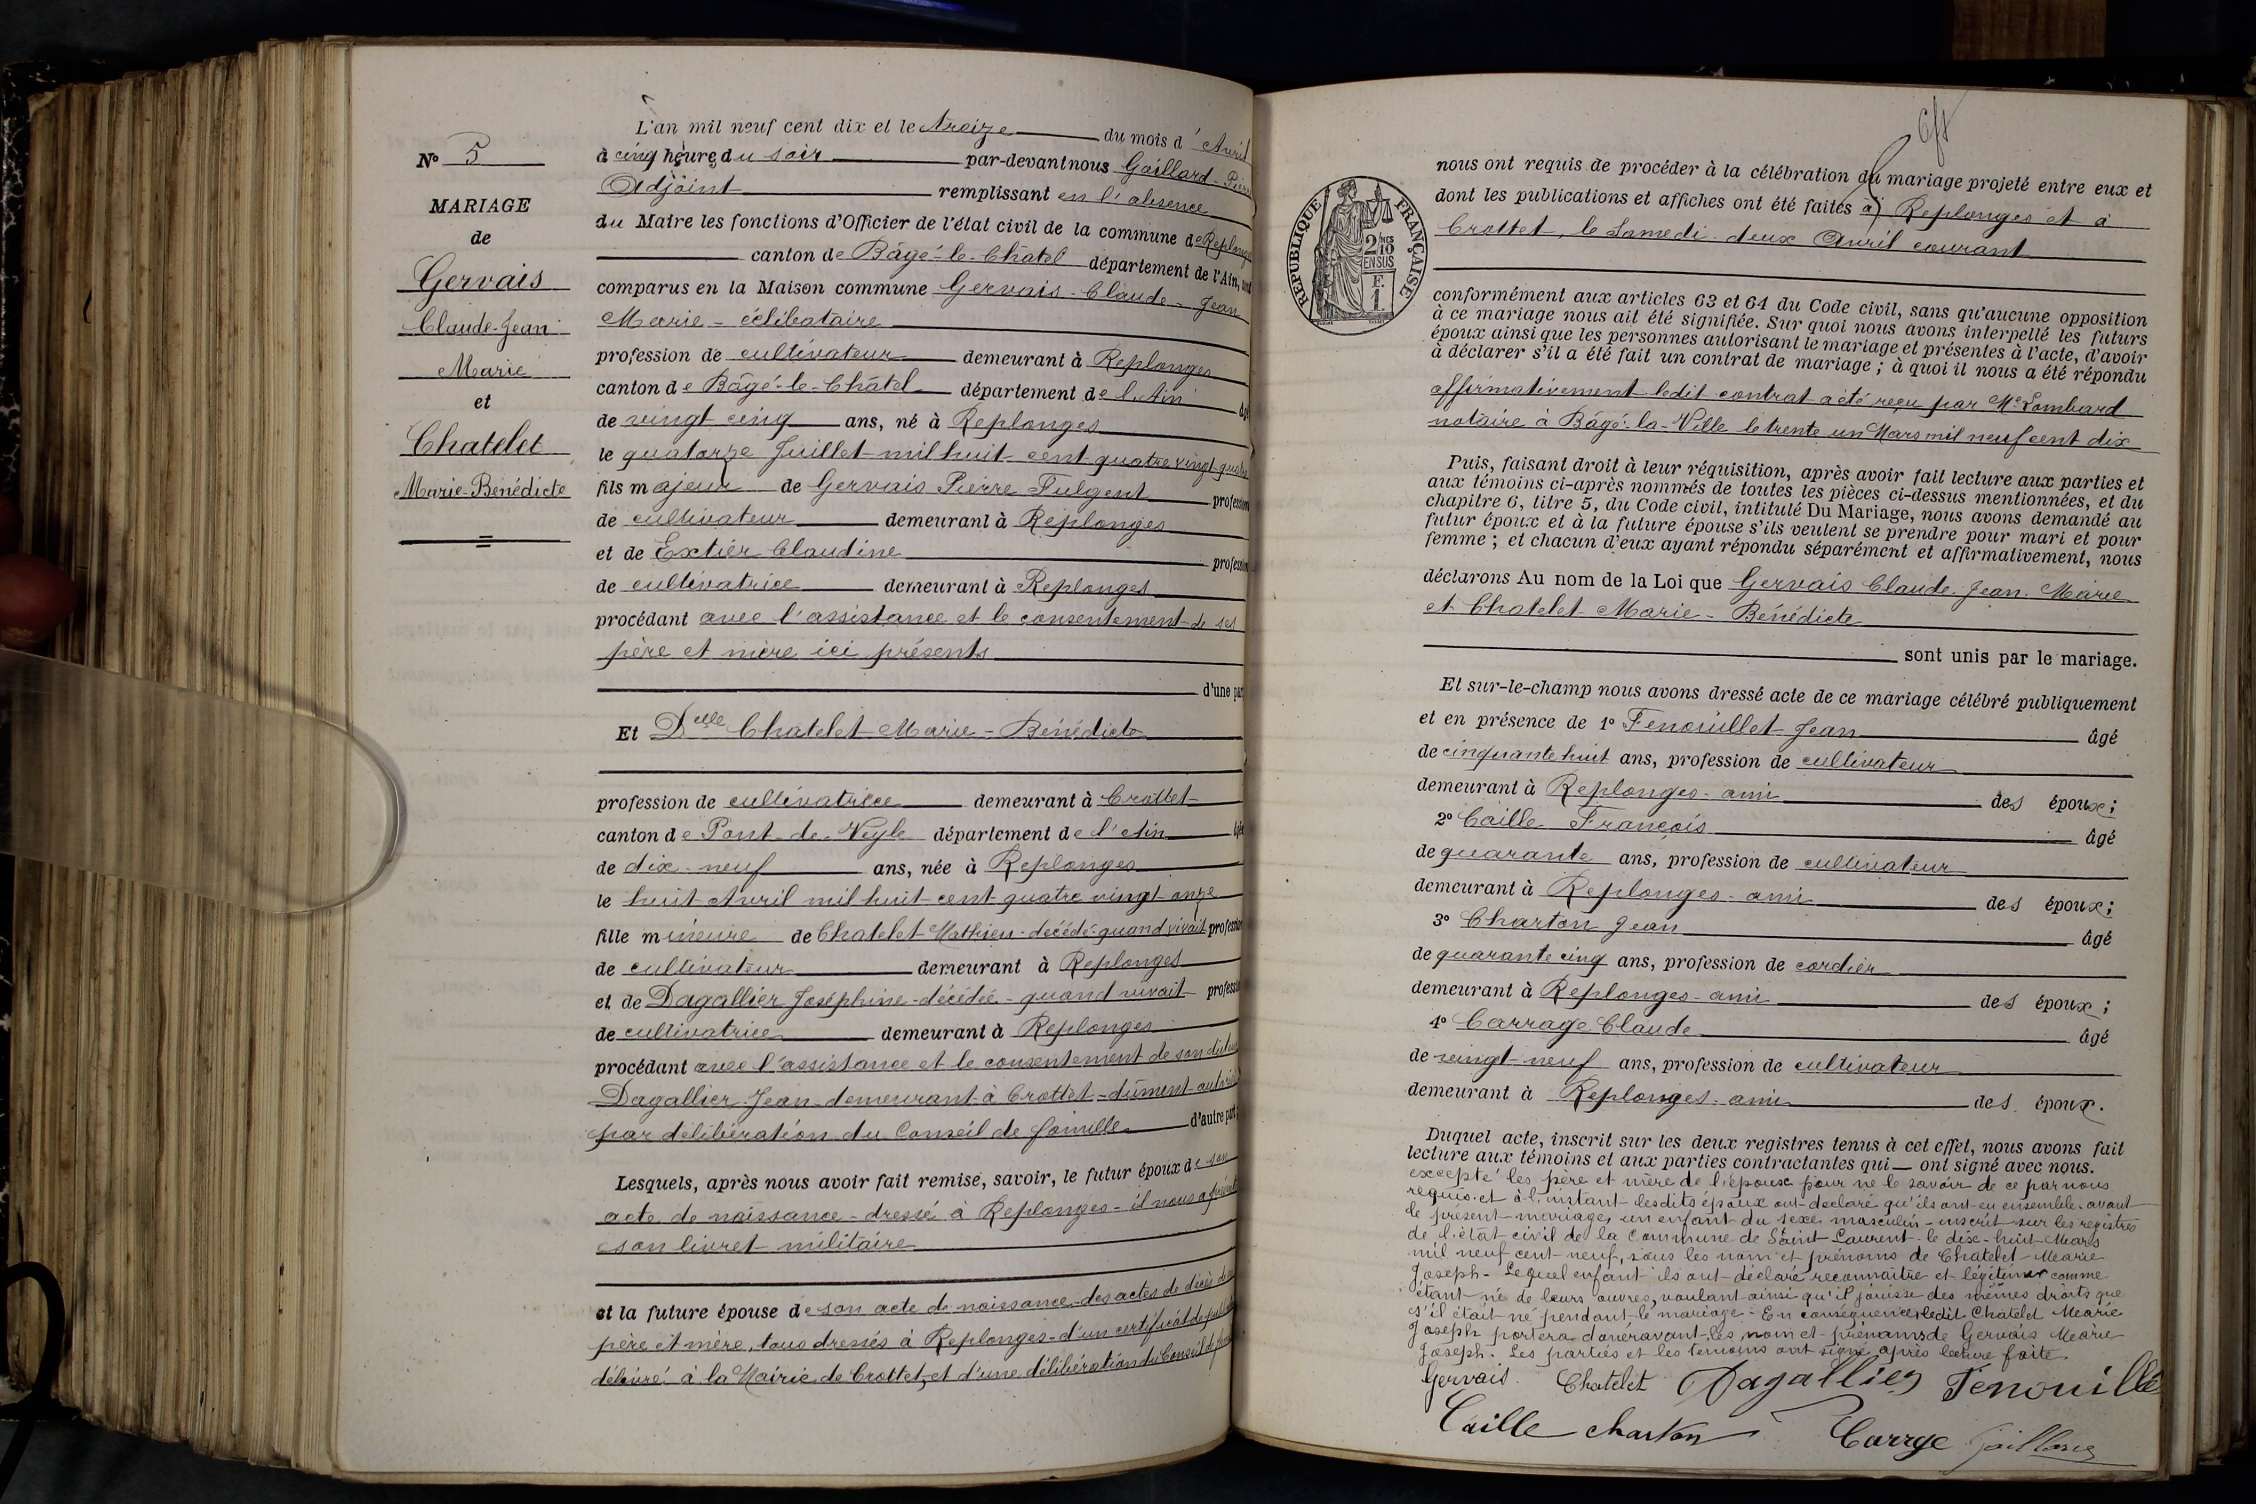 N° 5
MARIAGE
de
Gervais
Claude-Jean
Marie
et
Chatelet
Marie-Bénédicte
L'an mil neuf cent dix et le treize du mois d'Avril
à cinq heures du soir par-devant nous Gaillard - Pierre
Adjoint remplissant en l'absence
du Maire les fonctions d'Officier de l'état civil de la commune de Replonges
canton de Bâgé-le-Châtel département de l'Ain, ont
comparus en la Maison commune Gervais - Claude - Jean
Marie - célibataire
profession de cultivateur demeurant à Replonges
canton de Bâgé-le-Châtel département de l'Ain âgé
de vingt cinq ans, né à Replonges
le quatorze Juillet mil huit cent quatre vingt quatre
fils majeur de Gervais Pierre Fulgent profession
de cultivateur demeurant à Replonges
et de Extier Claudine profession
de cultivatrice demeurant à Replonges
procédant avec l'assistance et le consentement de ses
père et mère ici présents
d'une part
Et Delle Chatelet Marie - Bénédicte
profession de cultivatrice demeurant à Crottet
canton de Pont-de-Veyle département de l'Ain âgée
de dix-neuf ans, née à Replonges
le huit Avril mil huit cent quatre vingt onze
fille mineure de Chatelet Mathieu - décédé - quand vivait profession
de cultivateur demeurant à Replonges
et de Dagallier Joséphine - décédée - quand vivait profession
de cultivatrice demeurant à Replonges
procédant avec l'assistance et le consentement de son
Dagallier Jean demeurant à Crottet - dûment autorisé
par délibération du Conseil de famille d'autre part;
Lesquels, après nous avoir fait remise, savoir, le futur époux de son
acte de naissance - dressé à Replonges - il nous a présenté
son livret militaire
et la future épouse de son acte de naissance - des actes de décès de ses
père et mère, tous dressés à Replonges - d'un certificat de
délivré à la Mairie de Crottet, et d'une délibération du Conseil de famille
RÉPUBLIQUE FRANÇAISE
2 10
EN SUS
F.
1
nous ont requis de procéder à la célébration du mariage projeté entre eux et
dont les publications et affiches ont été faites à Replonges et à
Crottet, le Samedi deux Avril courant
conformément aux articles 63 et 64 du Code civil, sans qu'aucune opposition
à ce mariage nous ait été signifiée. Sur quoi nous avons interpellé les futurs
époux ainsi que les personnes autorisant le mariage et présentes à l'acte, d'avoir
à déclarer s'il a été fait un contrat de mariage ; à quoi il nous a été répondu
affirmativement - ledit contrat a été reçu par Me Lombard
notaire à Bâgé-la-Ville le trente un Mars mil neuf cent dix
Puis, faisant droit à leur réquisition, après avoir fait lecture aux parties et
aux témoins ci-après nommés de toutes les pièces ci-dessus mentionnées, et du
chapitre 6, titre 5, du Code civil, intitulé Du Mariage, nous avons demandé au
futur époux et à la future épouse s'ils veulent se prendre pour mari et pour
femme ; et chacun d'eux ayant répondu séparément et affirmativement, nous
déclarons Au nom de la Loi que Gervais Claude Jean Marie
et Chatelet Marie - Bénédicte
sont unis par le mariage.
Et sur-le-champ nous avons dressé acte de ce mariage célébré publiquement
et en présence de 1° Fenouillet Jean âgé
de cinquante huit ans, profession de cultivateur
demeurant à Replonges - ami des époux;
2° Caille François âgé
de quarante ans, profession de cultivateur
demeurant à Replonges - ami des époux;
3° Charton Jean âgé
de quarante cinq ans, profession de cordier
demeurant à Replonges - ami des époux;
4° Carrage Claude âgé
de vingt-neuf ans, profession de cultivateur
demeurant à Replonges - ami des époux.
Duquel acte, inscrit sur les deux registres tenus à cet effet, nous avons fait
lecture aux témoins et aux parties contractantes qui ont signé avec nous.
excepté les père et mère de l'époux pour ne le savoir de ce par nous
requis. et à l'instant lesdits époux ont déclaré qu'ils ont eu ensemble avant
le présent mariage, un enfant du sexe masculin - inscrit sur les registres
de l'état civil de la commune de Saint-Laurent le dix-huit Mars
mil neuf cent neuf, sous les nom et prénoms de Chatelet Marie
Joseph - Lequel enfant ils ont déclaré reconnaître et légitimer comme
étant né de leurs œuvres, voulant ainsi qu'il jouisse des mêmes droits que
s'il était né pendant le mariage - En conséquence, ledit Chatelet Marie
Joseph portera dorénavant les nom et prénoms de Gervais Marie
Joseph. Les parties et les témoins ont signé après lecture faite
Gervais Chatelet Dagallier Fenouillet
Caille Charton Carrge Gaillard